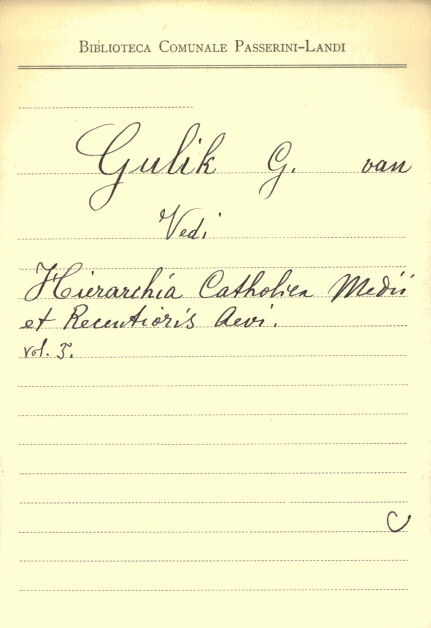 BIBLIOTECA COMUNALE PASSERINI-LANDI
Gulik G. van
Vedi
Hierarchia Catholica Medii
et Recentioris Aevi.
vol. 3.
C